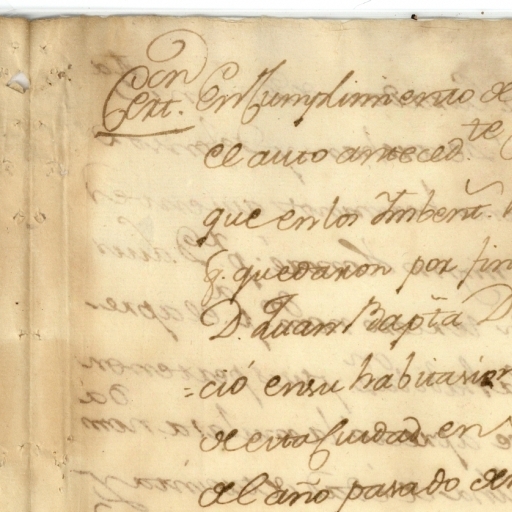 Con
Cert. En Cumplimiento de
el auto anteced.te
que en los Imbent.s
q. quedaron por fin
D. Juan Bapta D
=ció en su habitasion
de esta Ciudad en
del año pasado de